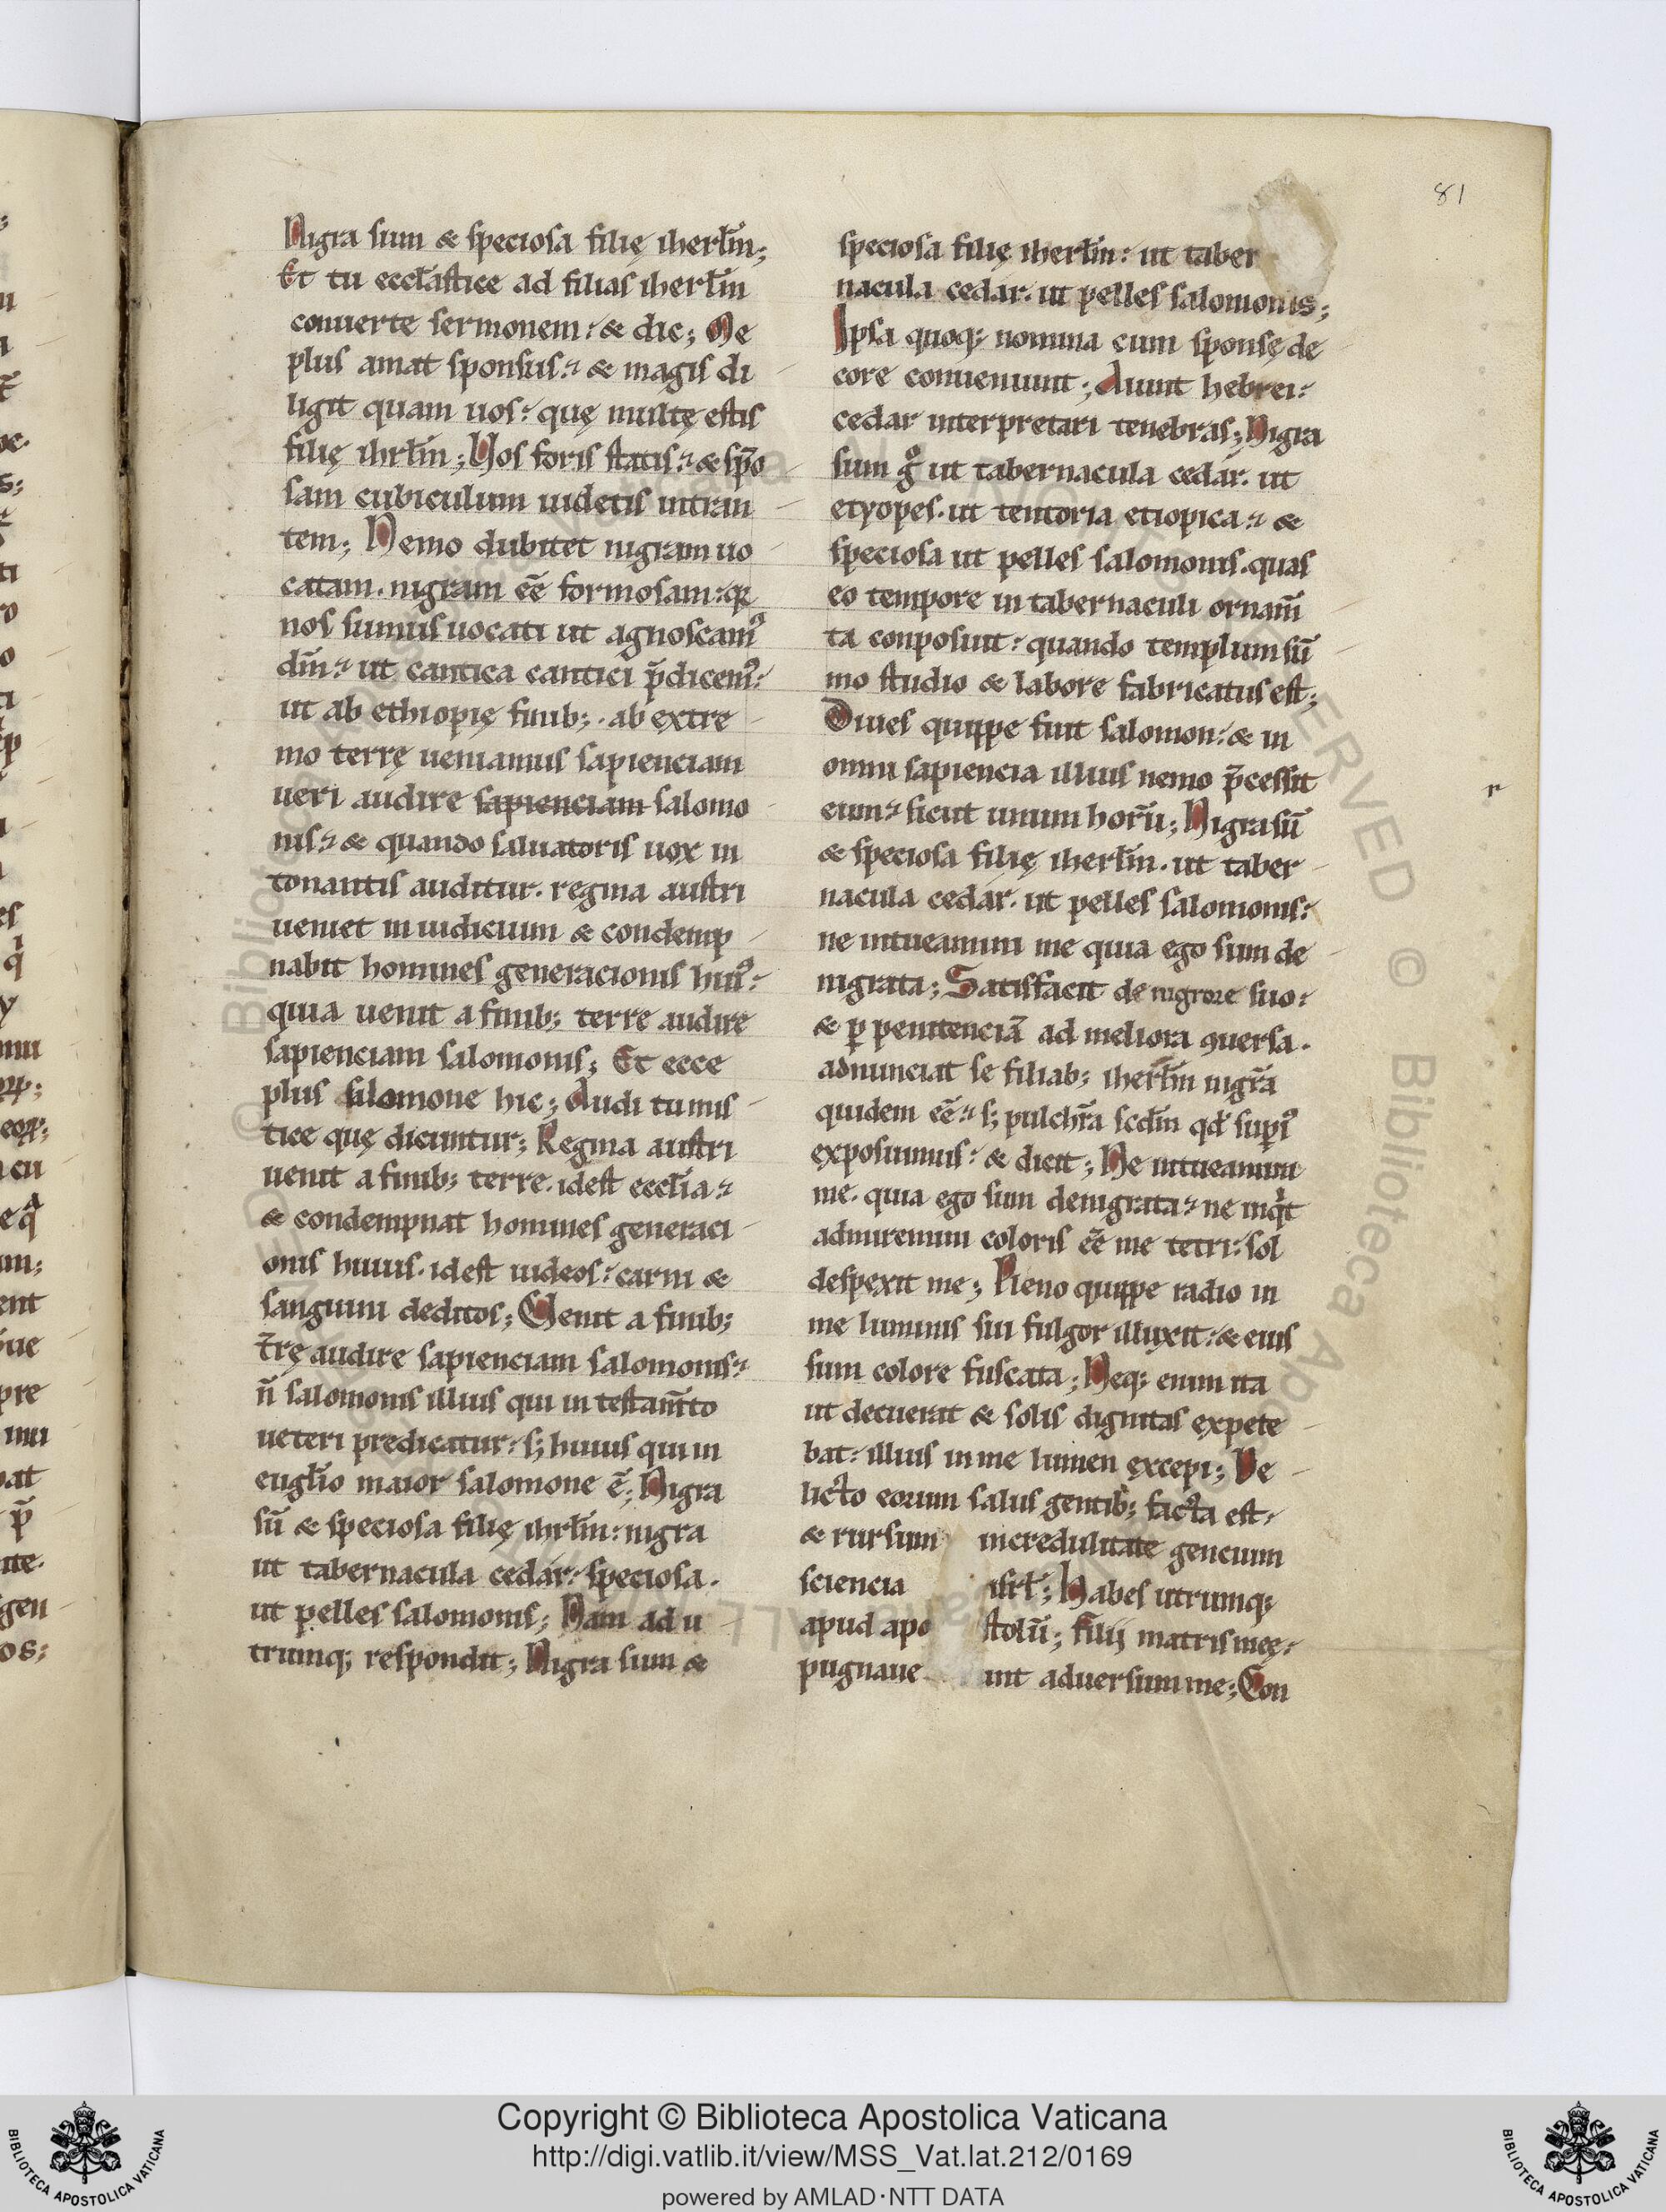 81
Nigra sum & speciosa filię iherl̄m;
Et tu eccl̄astice ad filias iherl̄m
conuerte sermonem: & dic; Me
plus amat sponsus: & magis di
ligit quam uos: quę multę estis
filię ihrl̄m; Uos foris statis: & spō
sam cubiculum uidetis intran
tem; Nemo dubitet nigram uo
catam. nigram eē formosam: qꝛ
nos sumus uocati ut agnoscam᾽
dn̄m: ut cantica cantici p̄dicem᾽:
ut ab ethiopię finib;. ab extre
mo terrę ueniamus sapienciam
ueri audire sapienciam salomo
nis: & quando saluatoris uox in
tonantis auditur. regina austri
ueniet in iudicium & condemp
nabit homines generacionis hui᾽:
quia uenit a finib; terre audire
sapienciam salomonis; Et ecce
plus salomone hic; Audi tu mis
tice quę dicuntur; Regina austri
uenit a finib; terre. idest eccl̄ia:
& condempnat homines generaci
onis huius. idest iudeos: carni &
sanguini deditos; Uenit a finib;
t̄rę audire sapienciam salomonis:
n̄ salomonis illius qui in testam̄to
ueteri predicatur: s; huius qui in
eugl̄io maior salomone ē; Nigra
sū & speciosa filię ihrl̄m: nigra
ut tabernacula cedar: speciosa.
ut pelles salomonis; Nam ad u
trumq; respondit; Nigra sum &
speciosa filię iherl̄m: ut taber
nacula cedar. ut pelles salomonis;
Ipsa quoq; nomina cum sponsę de
core conueniunt; Aiunt hebrei:
cedar interpretari tenebras; Nigra
sum gͦ ut tabernacula cedar. ut
etyopes. ut tentoria etiopica: &
speciosa ut pelles salomonis. quas
eo tempore in tabernaculi ornam̄
ta conposuit: quando templum sū
mo studio & labore fabricatus est;
Diues quippe fuit salomon: & in
omni sapiencia illius nemo p̄cessit
eum: sicut unum horū; Nigra sū
& speciosa filię iherl̄m. ut taber
nacula cedar. ut pelles salomonis:
ne intueamini me quia ego sum de
nigrata; Satisfacit de nigrore suo:
& ꝑ penitenciā ad meliora ꝯuersa.
adnunciat se filiab; iherl̄m nigrā
quidem eē: s; pulchrā scdm̄ qd̄ supi᾽
exposuimus: & dicit; Ne intueamini
me. quia ego sum denigrata: ne inqͥt
admiremini coloris eē me tetri: sol
despexit me; Pleno quippe radio in
me luminis sui fulgor illuxit: & eius
sum colore fuscata; Neq; enim ita
ut decuerat & solis dignitas expete
bat: illius in me lumen excepi; De
licto eorum salus gentib; facta est:
& rursum incredulitate gencium
sciencia isrl̄; Habes utrumq;
apud apo stolū; filij matris meę:
pugnaue runt aduersum me; Con
r
Copyright © Biblioteca Apostolica Vaticana
http://digi.vatlib.it/view/MSS_Vat.lat.212/0169
powered by AMLAD·NTT DATA
BIBLIOTECA APOSTOLICA VATICANA
BIBLIOTECA APOSTOLICA VATICANA